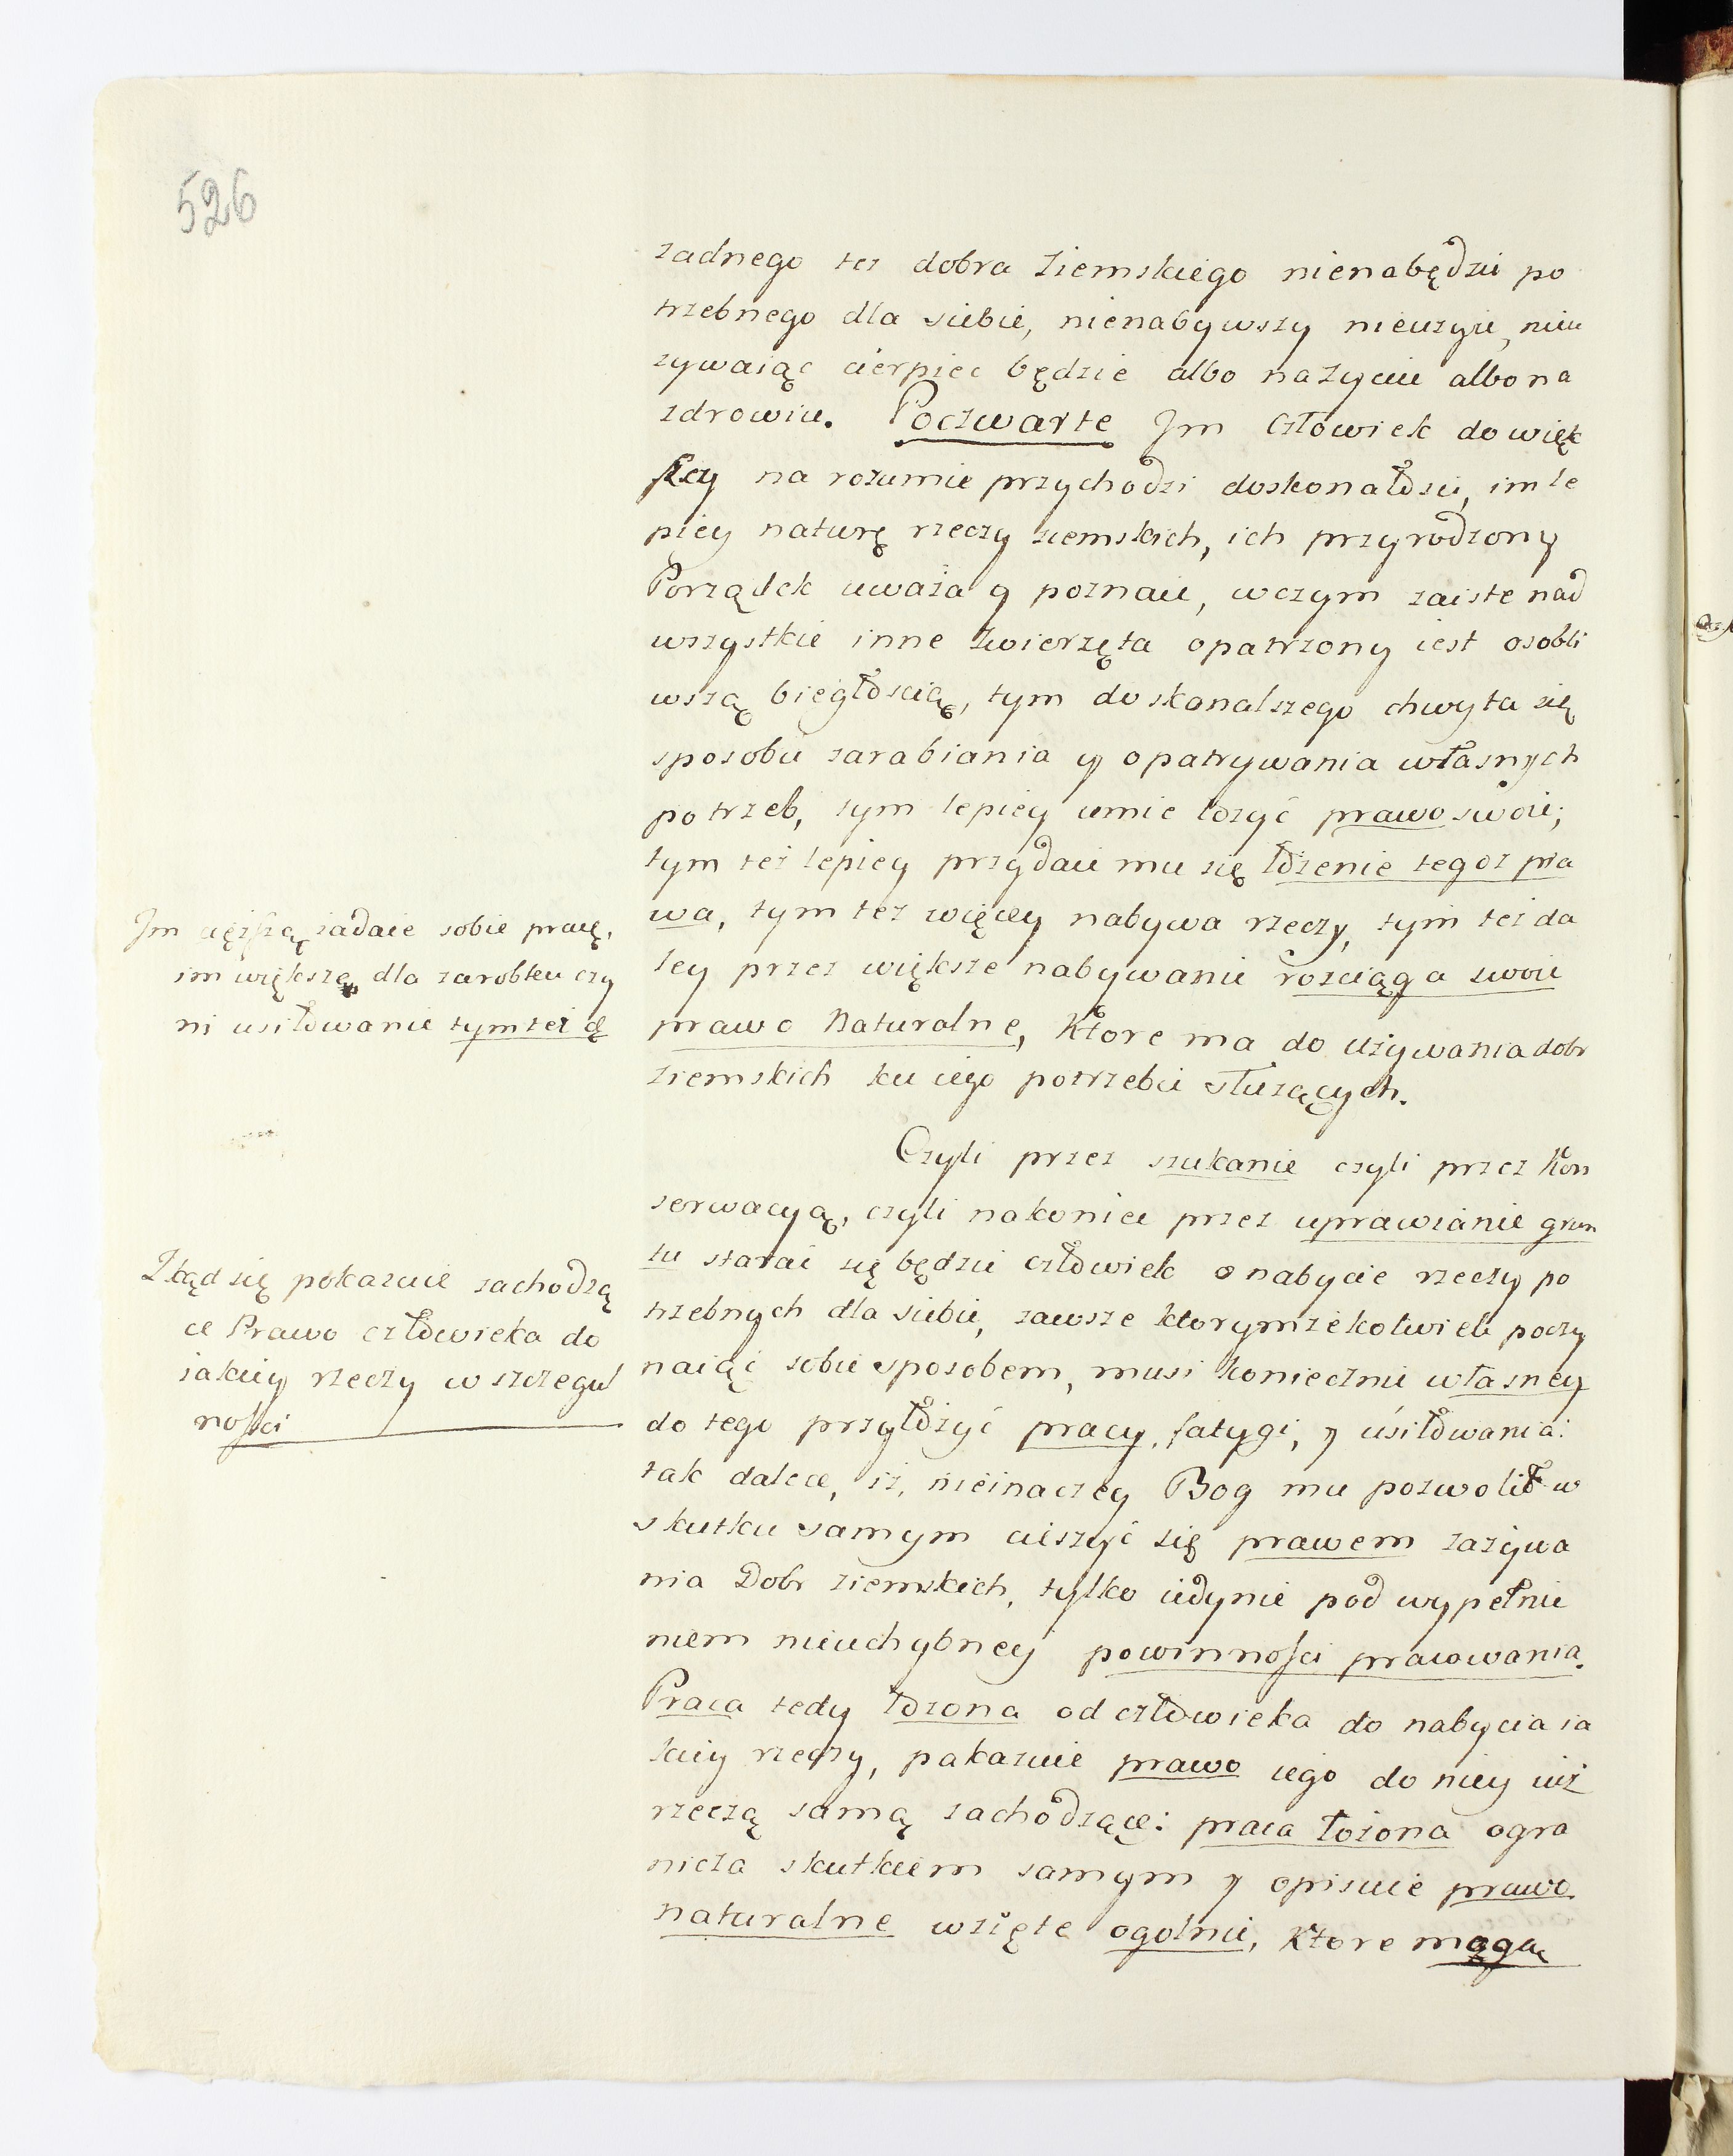 526
zadnego tez dobra ziemskiego nienabędzie po
trzebnego dla siebie, nienabywszy nieuzyie, nieu
zywaiąc cierpiec będzie albo nazyciu albo na
zdrowiu. Poczwarte Im człowiek do więk
szey na rozumie przychodzi doskonałosci, im le
piey naturę rzeczy ziemskich, ich przyrodzony
Porządek uważa y poznaie, wczym zaiste nad
wszystkie inne zwierzęta opatrzony iest osobli
wszą biegłoscią, tym doskonalszego chwyta się
sposobu zarabiania y opatrywania własnych
potrzeb, tym lepiey umie łozyć prawo swoie;
tym też lepiey przydaie mu się łożenie tegoz pra
wa, tym tez więcey nabywa rzeczy, tym też da
ley przez większe nabywanie rosciąga swoie
prawo Naturalne, ktore ma do używania dobr
ziemskich ku iego potrzebie służących.
Im cięższą zadaie sobie pracę,
im większe dla zarobku czy
ni usiłowanie tym też
Czyli przez szukanie czyli przez kon
serwacyą, czyli nakoniec przez uprawianie grun
tu starać się będzie człowiek o nabycie rzeczy po
trzebnych dla siebie, zawsze ktorymżekolwiek poczy
naiąc sobie sposobem, musi koniecznie własney
do tego przyłożyć pracy, fatygi, y usiłowania:
tak dalece, iż, nieinaczey Bog mu pozwolił w
skutku samym cieszyć się prawem zażywa
nia Dobr ziemskich, tylko iedynie pod wypełnie
niem nieuchybney powinności pracowania.
Praca tedy łożona od człowieka do nabycia ia
kiey rzeczy, pokazuie prawo iego do niey iuż
rzeczą samą zachodzące: praca łożona ogra
nicza skutkiem samym y opisuie prawo
naturalne wzięte ogolnie, ktore
Ztąd się pokazuie zachodzą
ce Prawo człowieka do
iakiey rzeczy w szczegul
ności